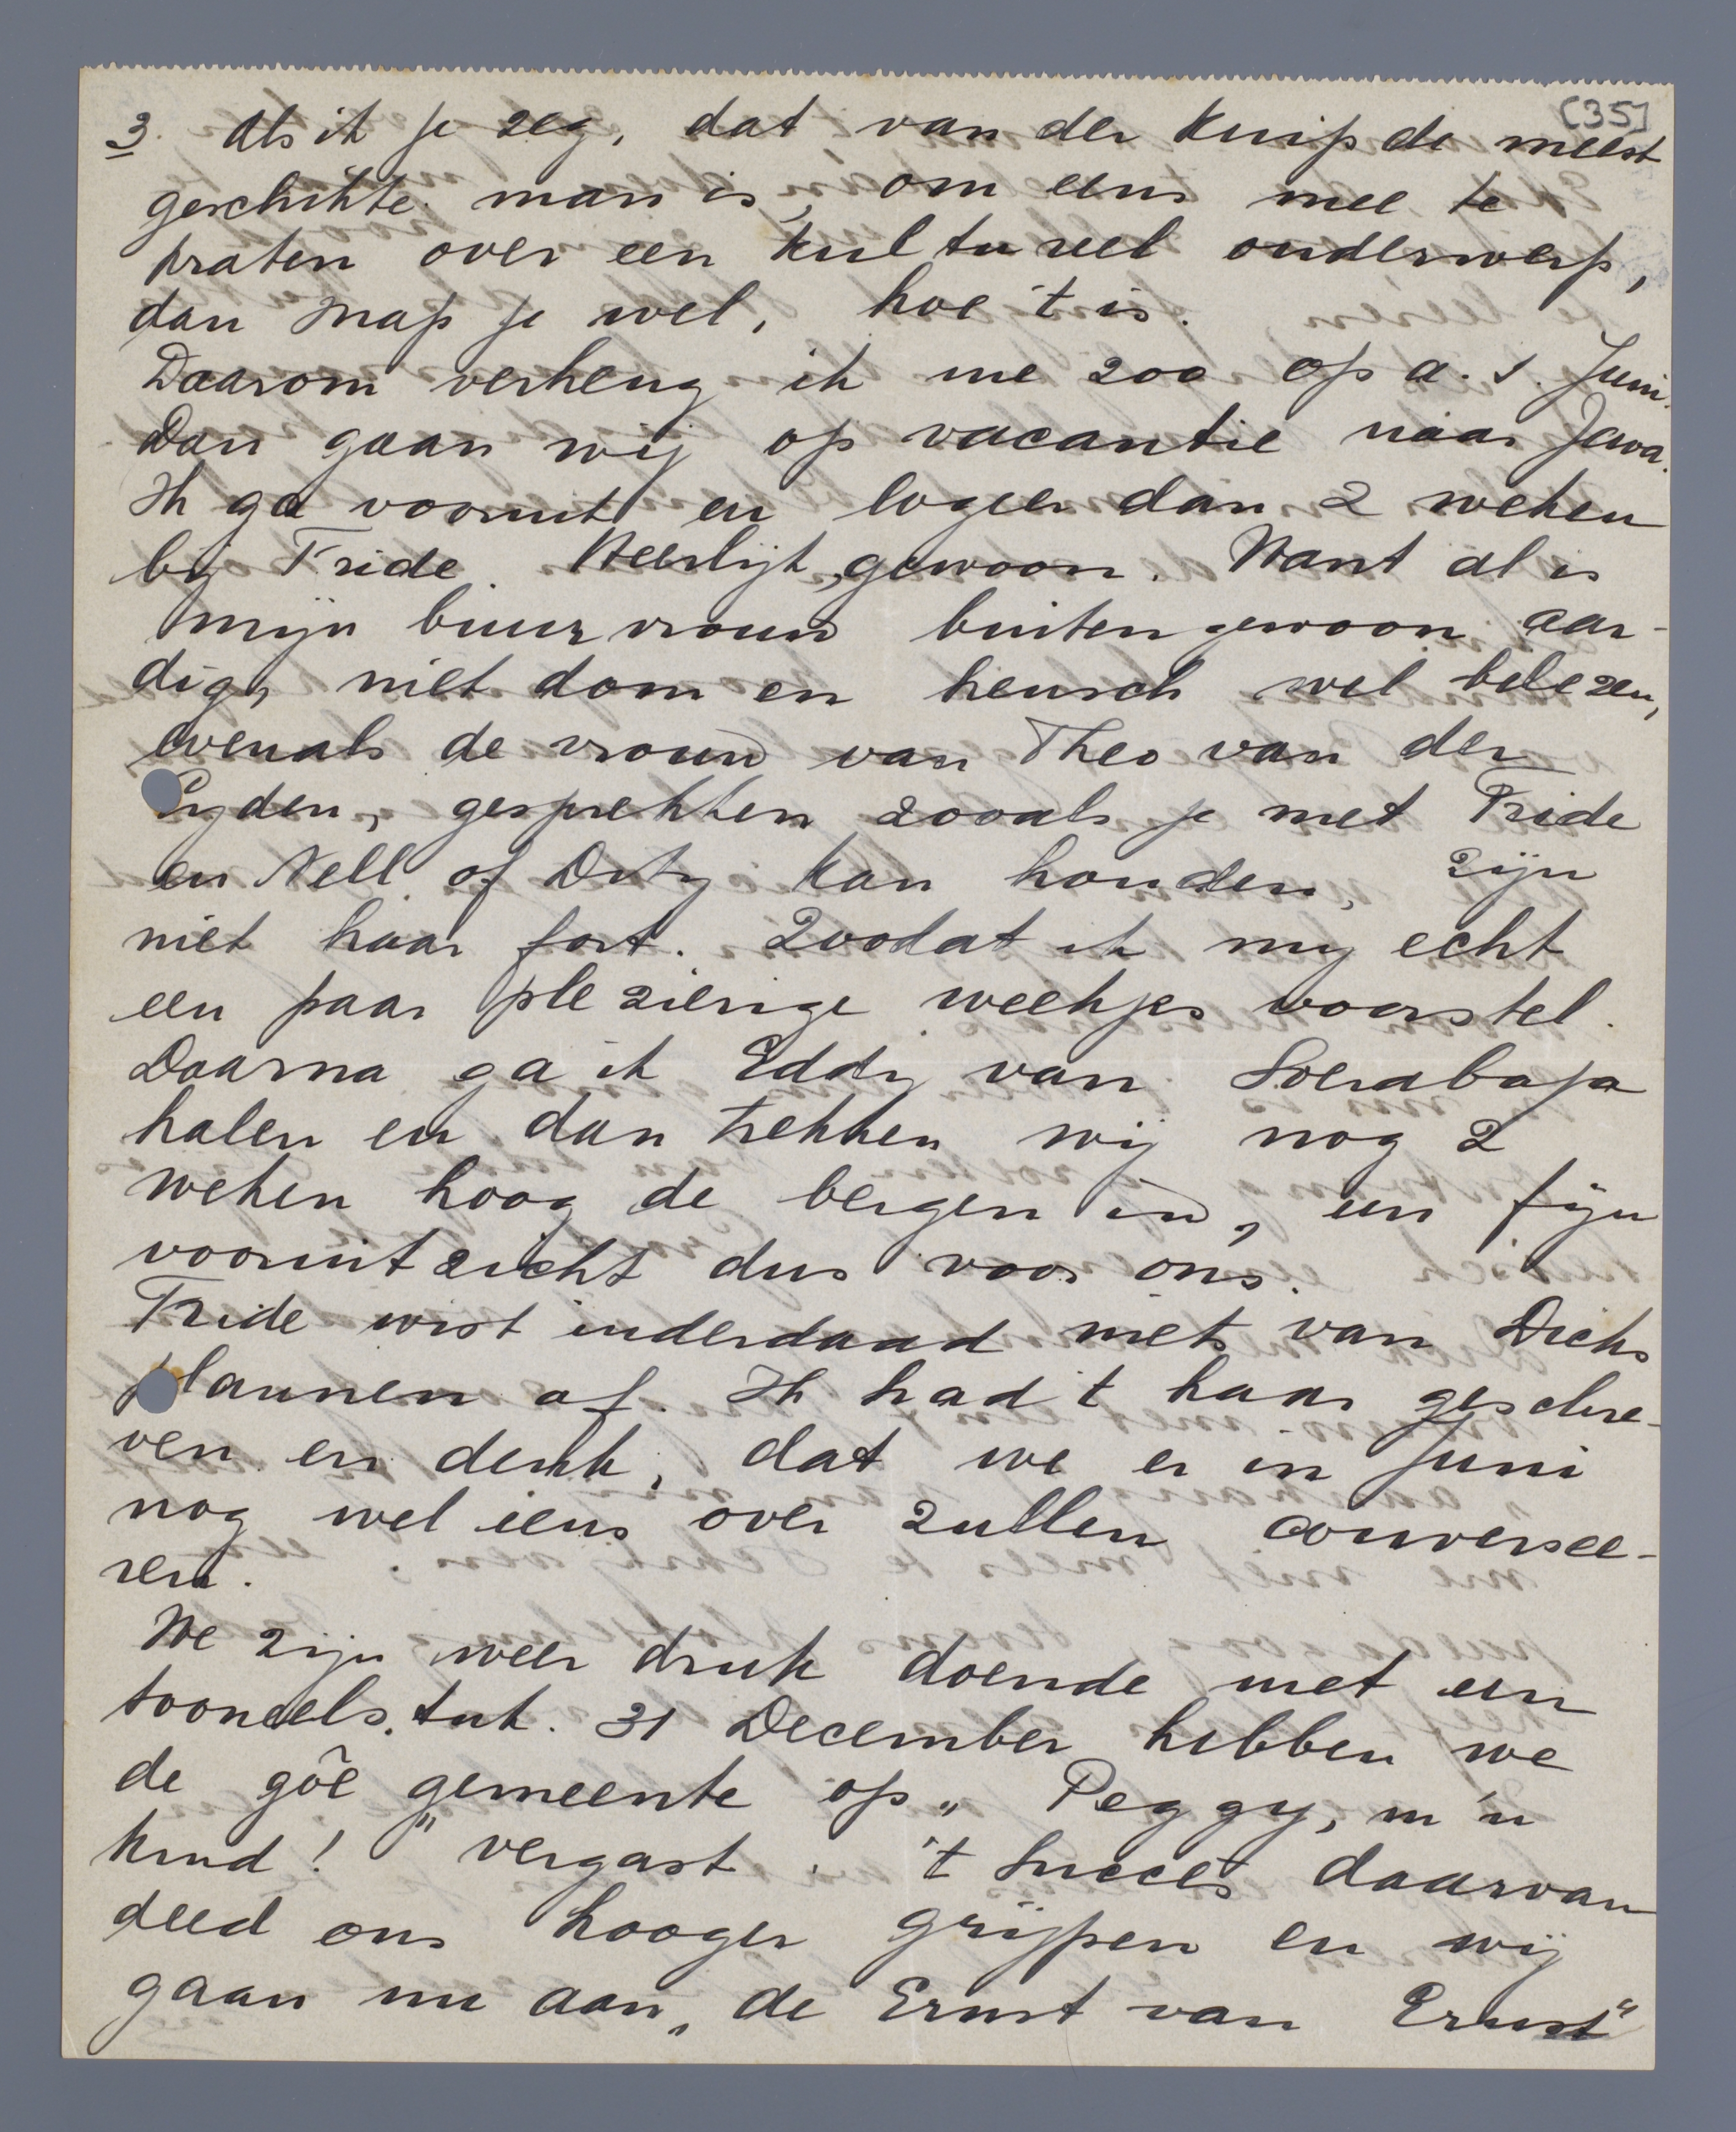 [35]
3. Als ik je zeg, dat van der Kuip de meest
geschikte man is, om eens mee te
praten over een kultureel onderwerp,
dan snap je wel, hoe 't is.
Daarom verheug ik me zoo op a.s. Juni.
Dan gaan wij op vacantie naar Java.
Ik ga vooruit en logeer dan 2 weken
bij Fride. Heerlijk, gewoon. Want al is
mijn buurvrouw buitengewoon aar-
dig, niet dom en heusch wel belezen,
evenals de vrouw van Theo van der
Eyden, gesprekken zooals je met Fride
en Nell of Dity kan houden, zijn
niet haar fort. Zoodat ik mij echt
een paar plezierige weekjes voorstel.
Daarna ga ik Eddy van Soerabaja
halen en dan trekken wij nog 2
weken hoog de bergen in, een fijn
vooruitzicht dus voor ons.
Fride wist inderdaad niets van Dicks
plannen af. Ik had 't haar geschre-
ven en denk, dat we er in Juni
nog wel eens over zullen conversee-
ren.
We zijn weer druk doende met een
tooneelstuk. 31 December hebben we
de gôe gemeente op „Peggy, m'n
kind!" vergast. 't Succes daarvan
deed ons hooger grijpen en wij
gaan nu aan „de Ernst van Ernst"